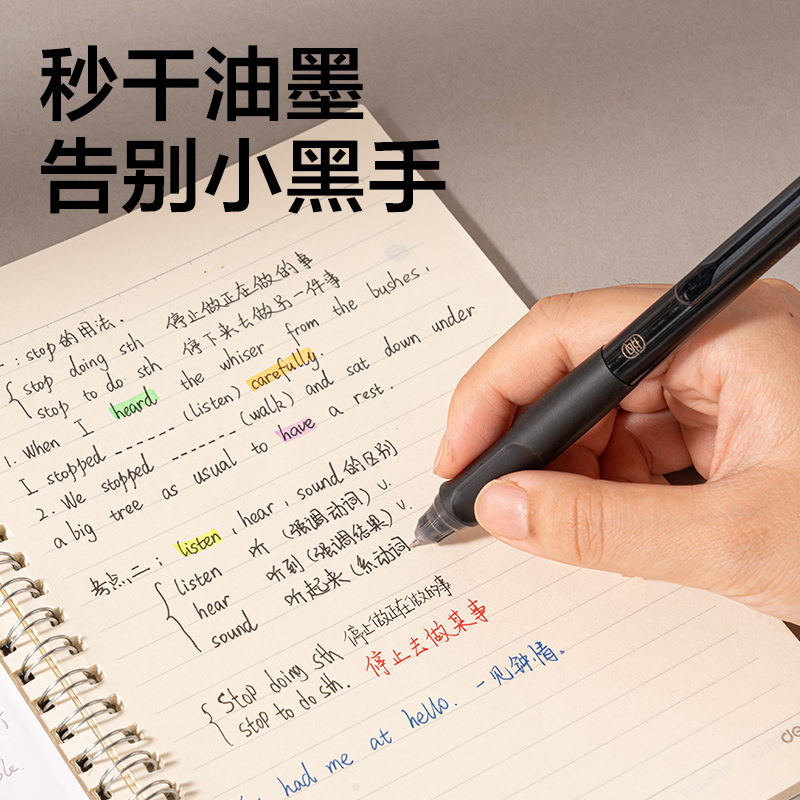 秒干油墨
告别小黑手
一:stop的用法.
stop doing sth 停止做正在做的事
stop to do sth 停下来去做另一件事
1. When I heard the whiser from the bushes,
I stopped ------ (listen) carefully.
2. We stopped ------ (walk) and sat down under
a big tree as usual to have a rest.
考点二: listen, hear, sound的区别
listen 听 (强调动词) v.
hear 听到 (强调结果) v.
sound 听起来 (系动词
Stop doing sth 停止做正在做的事
stop to do sth. 停止去做某事
had me at hello. 一见钟情。
de